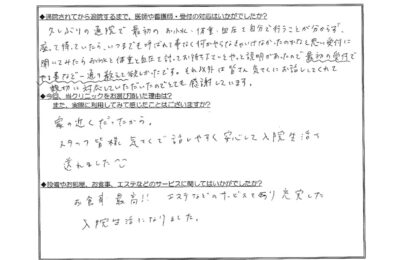 ◆来院されてから退院するまで、医師や看護師・受付の対応はいかがでしたか?
久しぶりの通院で 最初の お小水・体重・血圧を自分で行うことが分からず、
座って待っていたら、いつまでも呼ばれる事なく何かやらなきゃいけなかったのかなと思い受付に
聞いてみたらお小水と体重と血圧を計ってお待ち下さいと説明があったので最初の受付で
やる事など一通り教えて欲しかったです。それ以外は皆さん気さくにお話ししてくれて
親切に対応していただいたのでとても感謝しています。
◆今回、当クリニックをお選び頂いた理由は?
また、実際に利用してみて感じたことはございますか?
家の近くだったから。
スタッフ皆様 気さくで話しやすく安心して入院生活を
送れました
◆設備やお部屋、お食事、エステなどのサービスに関してはいかがでしたか?
お食事 最高!! エステなどのサービスもあり充実した
入院生活になりました。